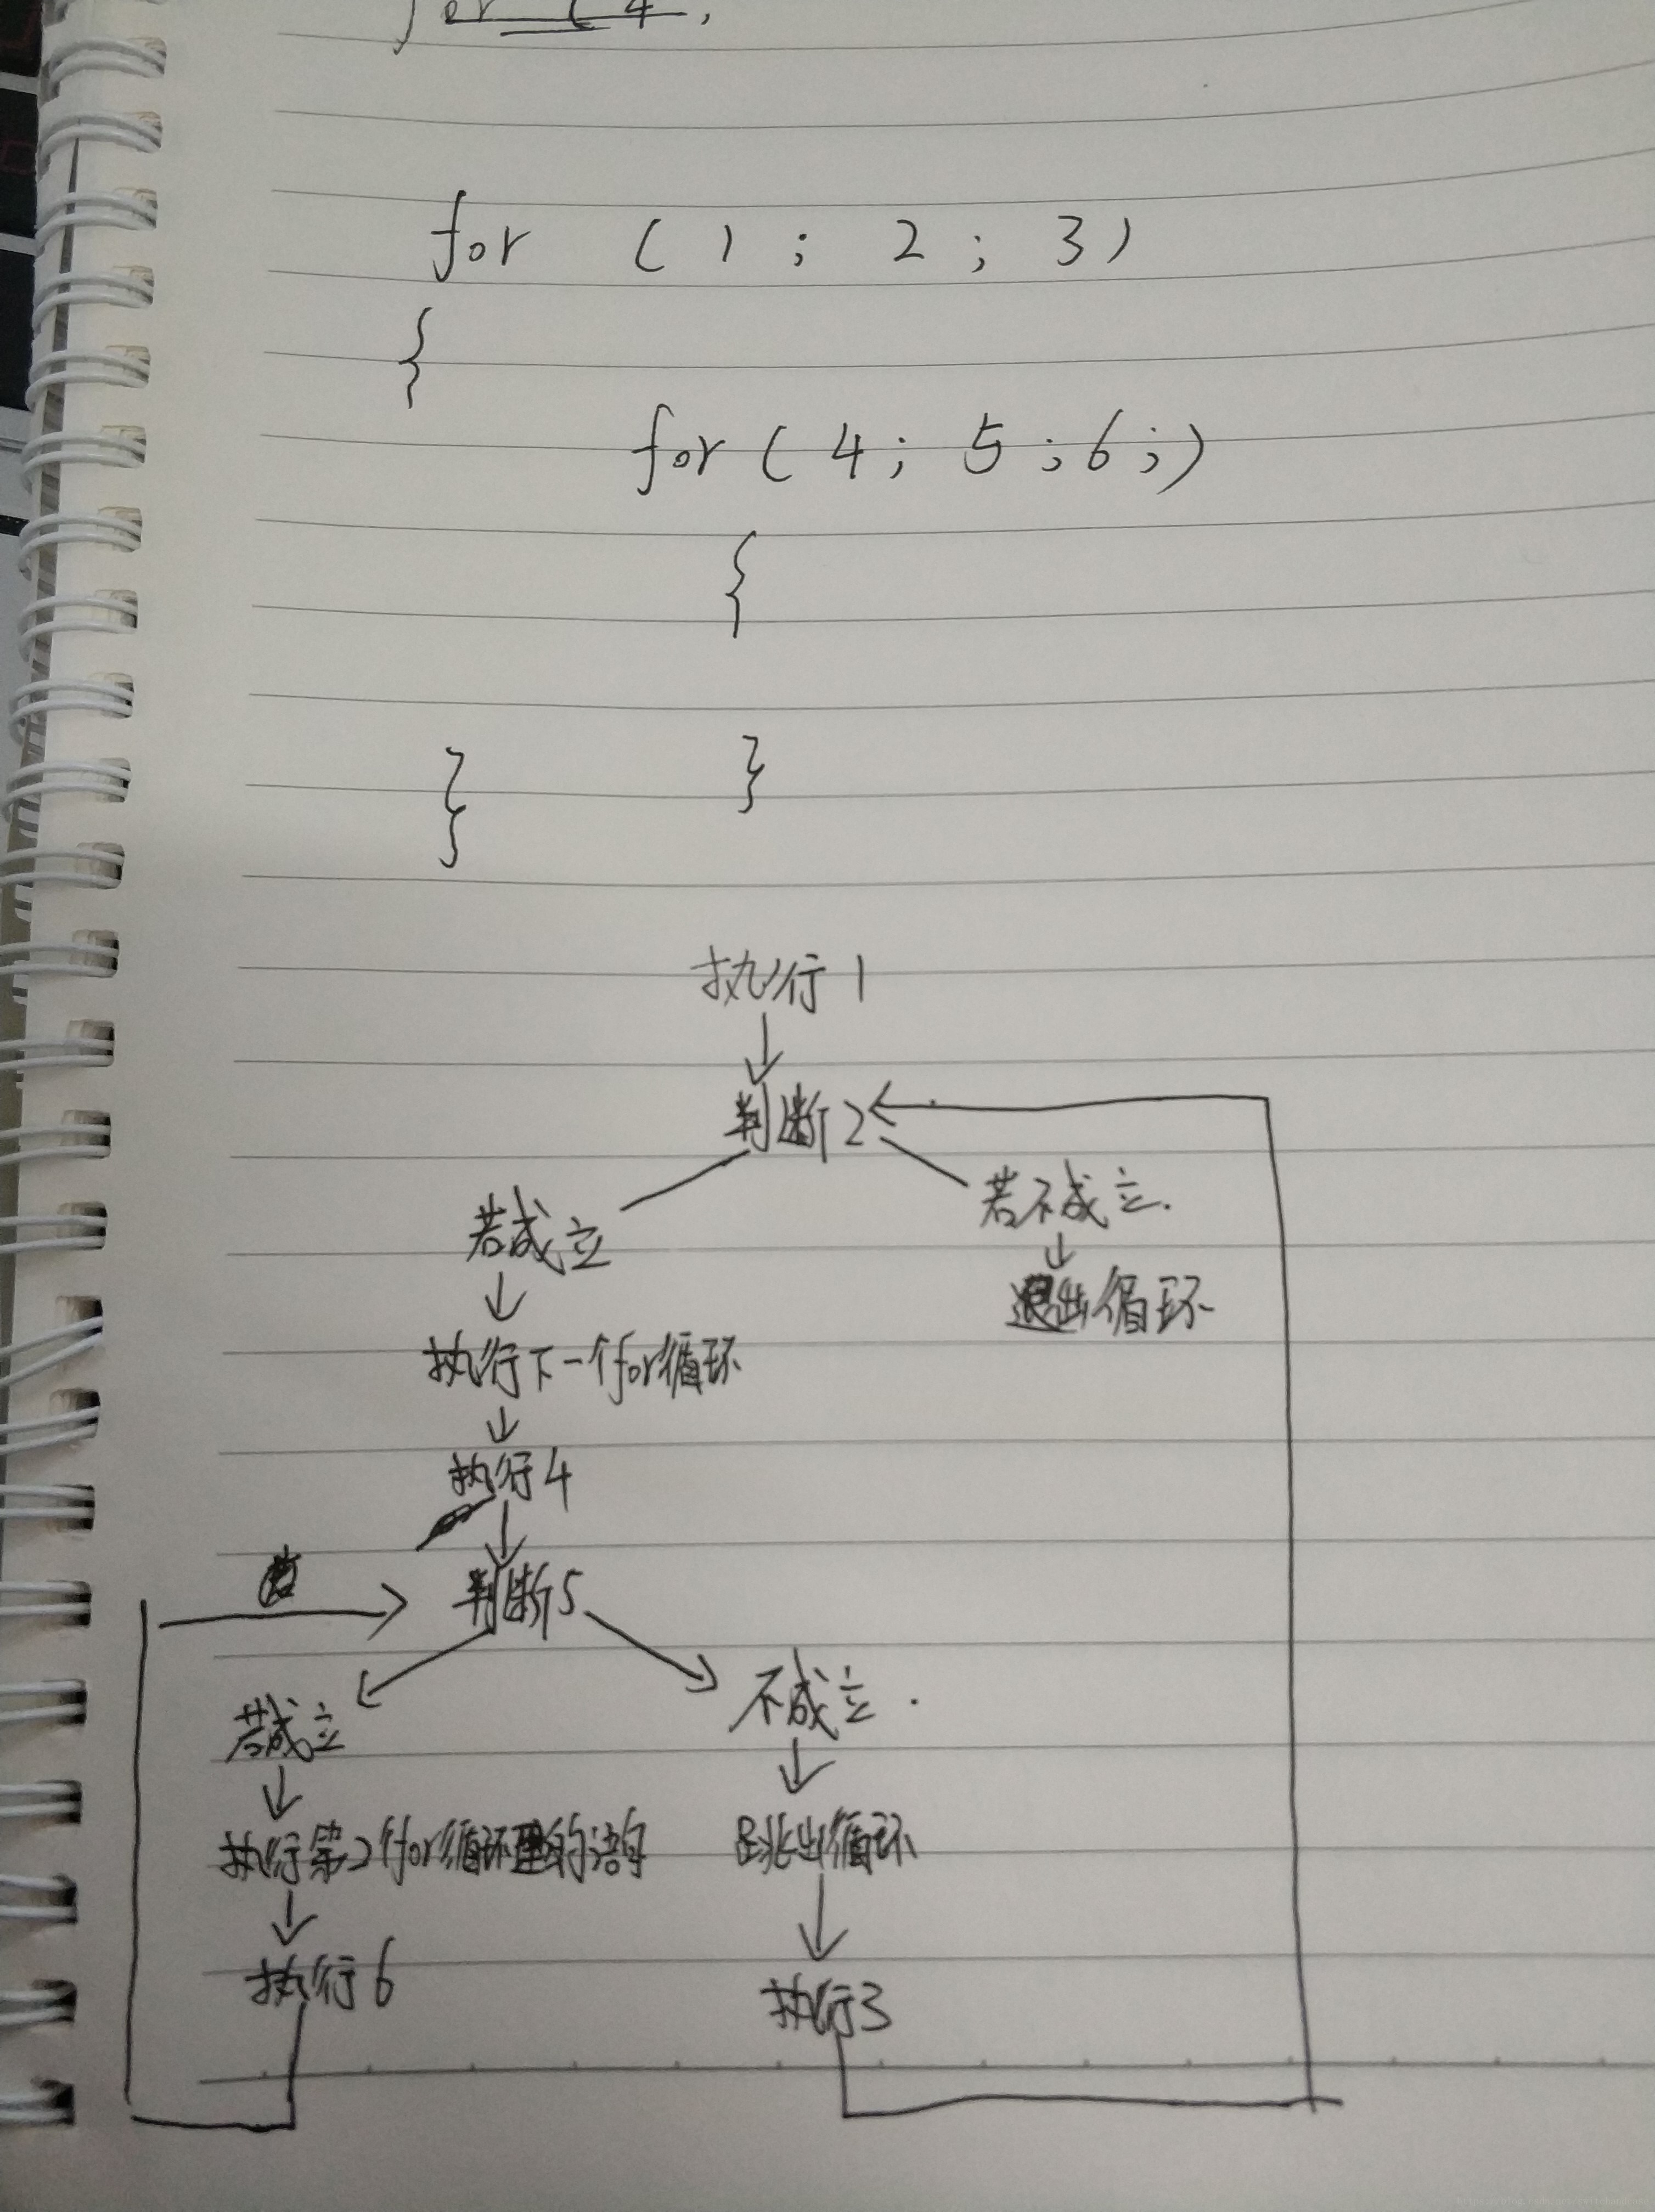 for (4;
for (1; 2; 3)
{
for(4; 5;6;)
{
}
}
执行1
判断2
若成立
若不成立.
退出循环
执行下一个for循环
执行4
判断5
若成立
不成立.
执行第2个for循环里的语句
跳出循环
执行6
执行3